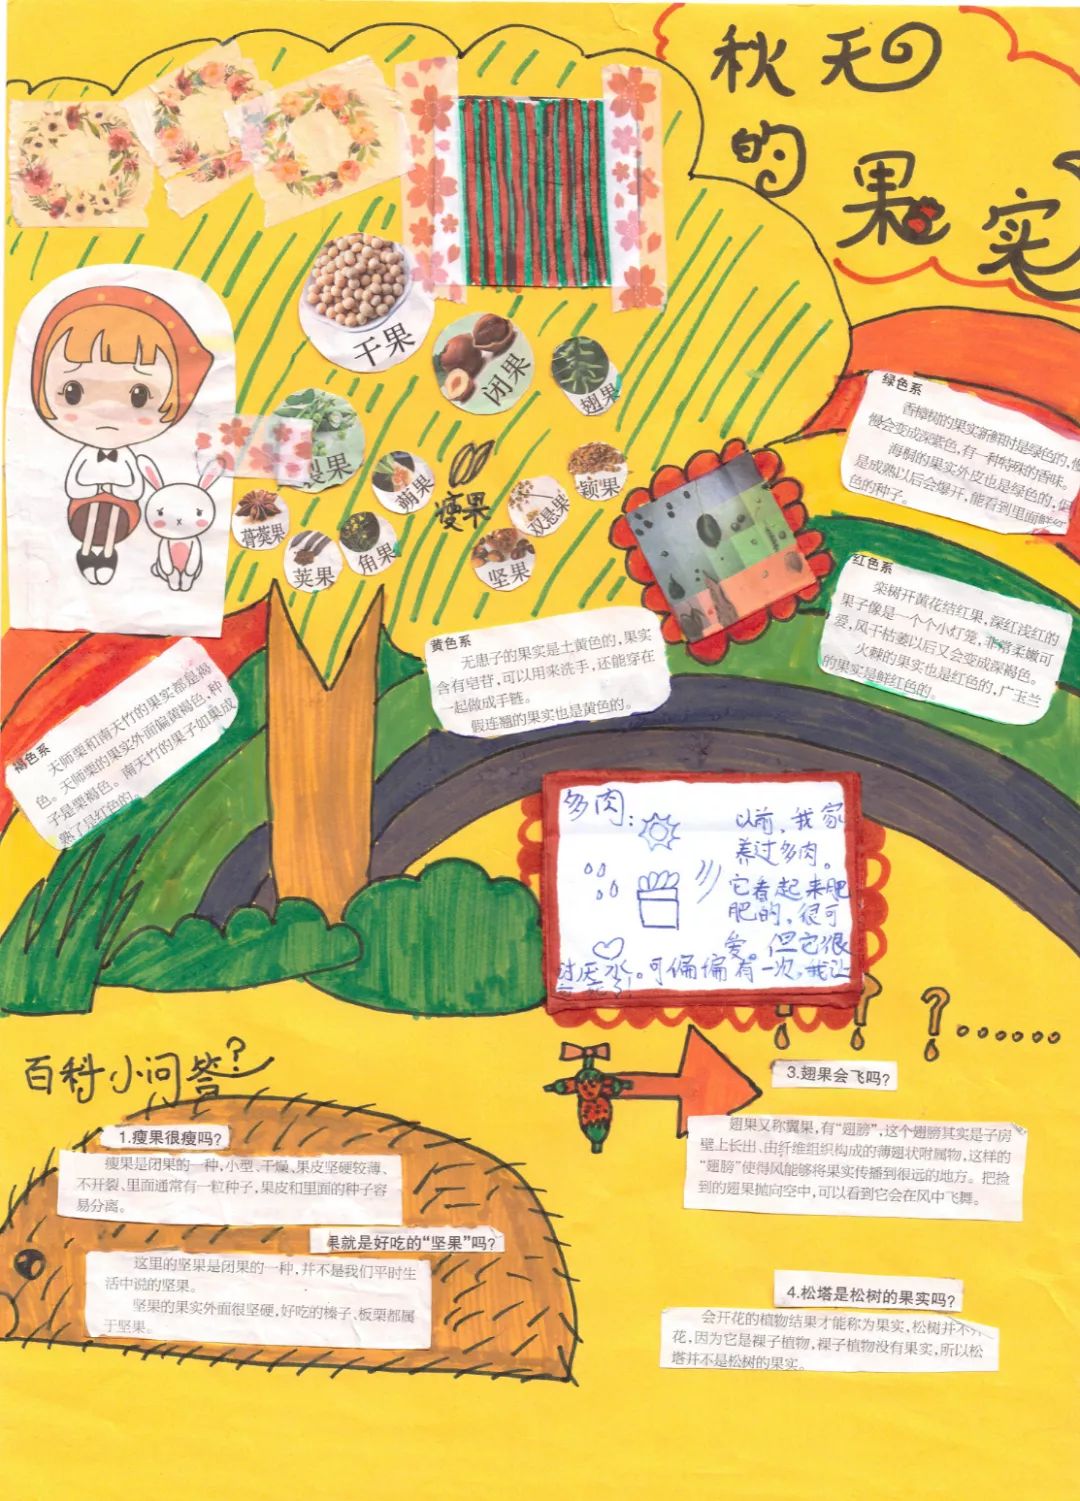 秋天
的
果
实
干果
闭果
翅果
裂果
萌果
瘦果
颖果
双悬果
蓇葖果
角果
荚果
坚果
绿色系
香樟树的果实新鲜时是绿色的,慢
慢会变成深紫色,有一种特殊的香味。
海桐的果实外皮也是绿色的,但
是成熟以后会爆开,能看到里面鲜红
色的种子。
红色系
栾树开黄花结红果,深红浅红的
果子像是一个个小灯笼,非常柔嫩可
爱,风干枯萎以后又会变成深褐色。
火棘的果实也是红色的,广玉兰
的果实是鲜红色的。
黄色系
无患子的果实是土黄色的,果实
含有皂苷,可以用来洗手,还能穿在
一起做成手链。
假连翘的果实也是黄色的。
褐色系
天师栗和南天竹的果实都是褐
色。天师栗的果实外面偏黄褐色,种
子是栗褐色。南天竹的果子如果成
熟了是红色的。
多肉:
以前,我家
养过多肉。
它看起来肥
肥的,很可
爱。但它很
讨厌水。可偏偏有一次,我让
百科小问答?
? ? ?……
1.瘦果很瘦吗?
瘦果是闭果的一种,小型、干燥、果皮坚硬较薄、
不开裂、里面通常有一粒种子,果皮和里面的种子容
易分离。
果就是好吃的“坚果”吗?
这里的坚果是闭果的一种,并不是我们平时生
活中说的坚果。
坚果的果实外面很坚硬,好吃的榛子、板栗都属
于坚果。
3.翅果会飞吗?
翅果又称翼果,有“翅膀”,这个翅膀其实是子房
壁上长出、由纤维组织构成的薄翅状附属物,这样的
“翅膀”使得风能够将果实传播到很远的地方。把捡
到的翅果抛向空中,可以看到它会在风中飞舞。
4.松塔是松树的果实吗?
会开花的植物结果才能称为果实,松树并不开
花,因为它是裸子植物,裸子植物没有果实,所以松
塔并不是松树的果实。